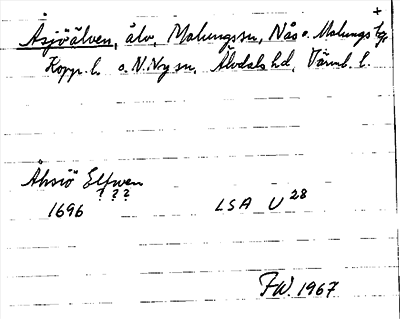 +
Åsjöälven, älv, Malungssn, Nås o. Malungs tg,
Kopp. l. o. N. Ny sn, Älvdals hd, Värml. l.
Åhsiö Elfwen
? ? ?
1696 LSA U 28
FW. 1967